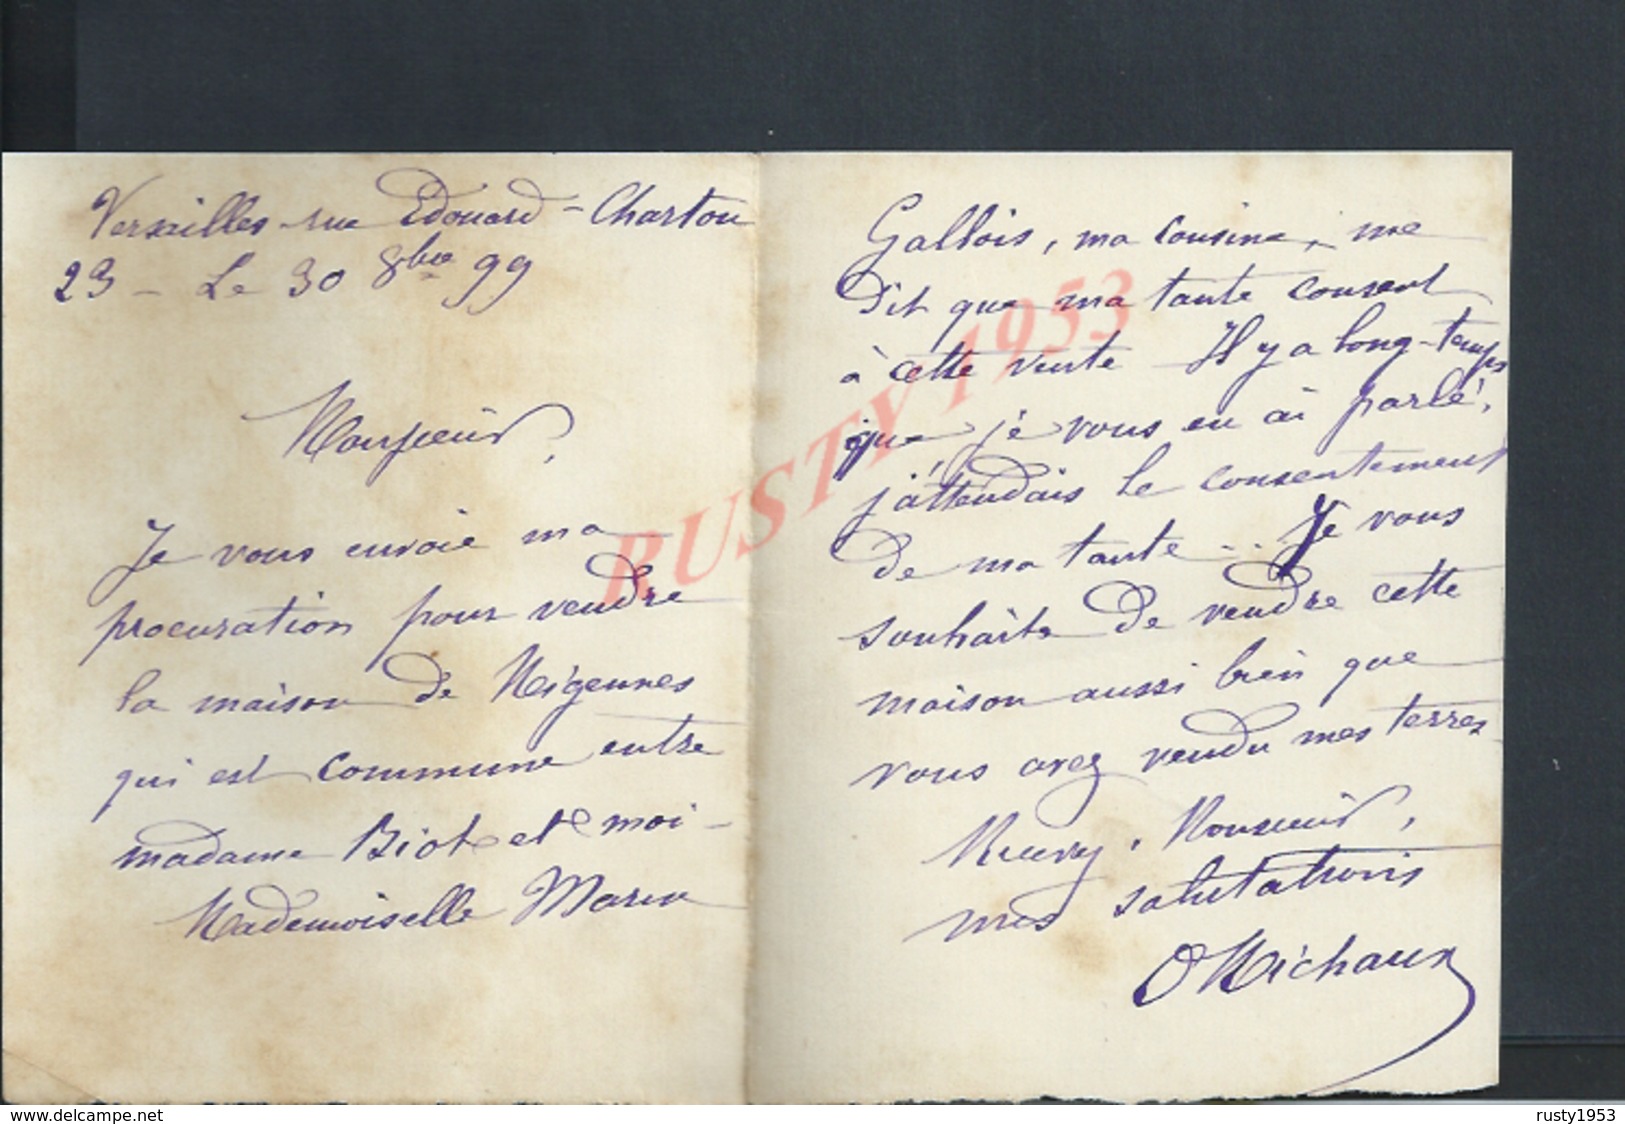 Versailles - rue Edouard - Charton
23 - Le 30 8bre 99
Monsieur,
Je vous envoie ma
procuration pour vendre
la maison de Migennes
qui est commune entre
madame Biot et moi -
Mademoiselle Maria
Gallois, ma cousine, me
dit que ma tante consent
à cette vente Il y a long-temps
que je vous en ai parlé,
j'attendais le consentement
de ma tante .. Je vous
souhaite de vendre cette
maison aussi bien que
vous avez vendu mes terres
Recevez, Monsieur,
mes salutations
O Michaux
RUSTY 1953
delcampe.net
rusty1953